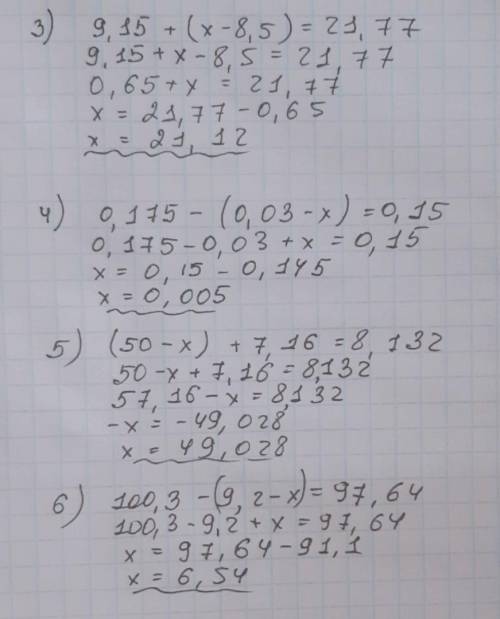 3) 9,15 + (x-8,5) = 21,77
9,15 + x - 8,5 = 21,77
0,65 + x = 21,77
x = 21,77 - 0,65
x = 21,12
4) 0,175 - (0,03 - x) = 0,15
0,175 - 0,03 + x = 0,15
x = 0,15 - 0,145
x = 0,005
5) (50 - x) + 7,16 = 8,132
50 - x + 7,16 = 8,132
57,16 - x = 8,132
-x = -49,028
x = 49,028
6) 100,3 - (9,2 - x) = 97,64
100,3 - 9,2 + x = 97,64
x = 97,64 - 91,1
x = 6,54